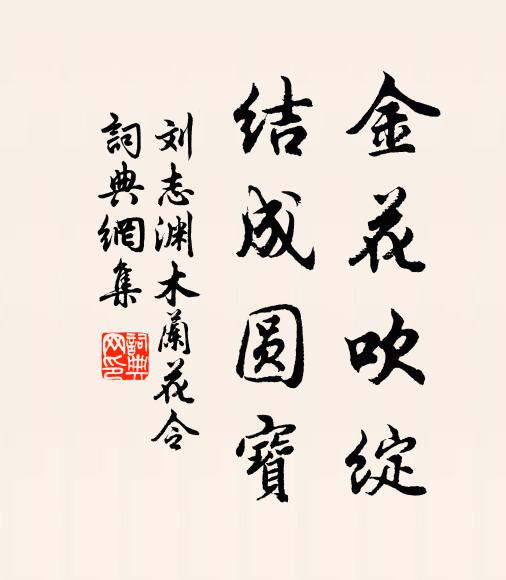 金花吹綻
结成圆寶
刘志渊木蘭花令
詞典網集
詞典网印